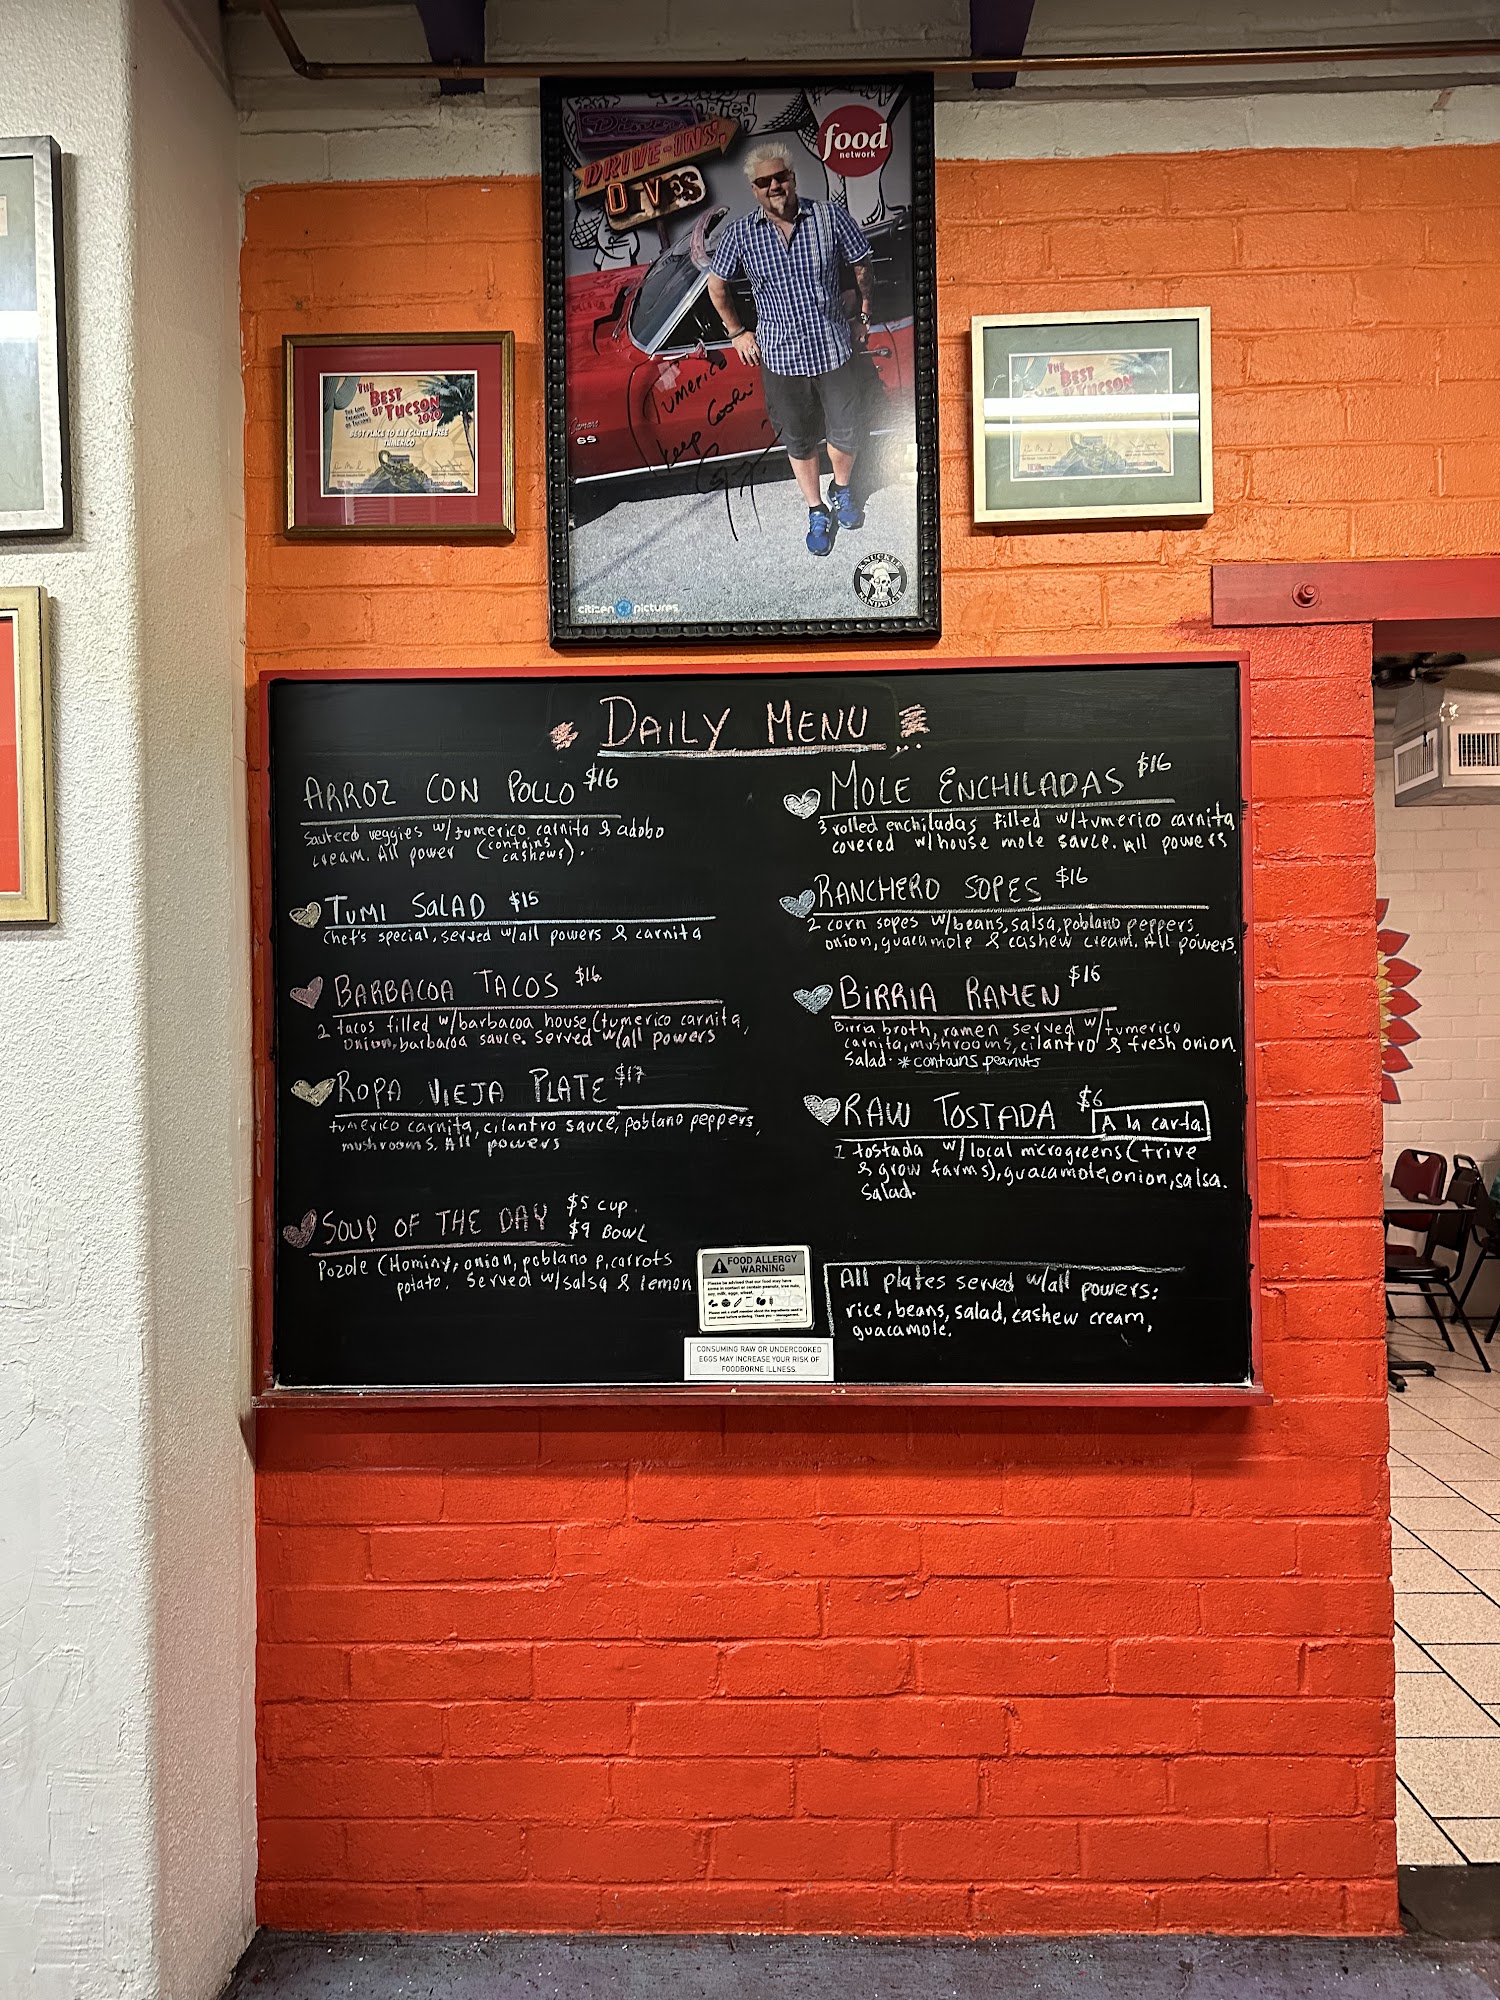 Diners
DRIVE-INS,
DIVES
food
network
Tumerico
keep Cookin
SS
citizen pictures
KNUCKLE
SANDWICH
THE
BEST
OF TUCSON
2020
BEST PLACE TO EAT GLUTEN FREE
TUMERICO
THE
BEST
OF TUCSON
DAILY MENU
ARROZ CON POLLO $16
Sauteed veggies w/tumerico carnita & adobo
cream. All power (contains
cashews).
TUMI SALAD $15
Chef's special, served w/all powers & carnita
BARBACOA TACOS $16
2 tacos filled w/barbacoa house (tumerico carnita,
onion, barbacoa sauce. Served w/all powers
ROPA VIEJA PLATE $17
tumerico carnita, cilantro sauce, poblano peppers,
mushrooms. All powers
SOUP OF THE DAY $5 CUP
$9 BOWL
Pozole (Hominy, onion, poblano p, carrots
potato. Served w/salsa & lemon
MOLE ENCHILADAS $16
3 rolled enchiladas filled w/tumerico carnita
covered w/house mole sauce. All powers
RANCHERO SOPES $16
2 corn sopes w/beans, salsa, poblano peppers
onion, guacamole & cashew cream. All powers.
BIRRIA RAMEN $16
Birria broth, ramen served w/tumerico
carnita, mushrooms, cilantro & fresh onion
Salad. *contains peanuts
RAW TOSTADA $6
A la carta
1 tostada w/local microgreens (trive
& grow farms), guacamole, onion, salsa.
Salad.
FOOD ALLERGY
WARNING
Please be advised that our food may have
come in contact or contain peanuts, tree nuts,
soy, milk, eggs, wheat.
Please ask a staff member about the ingredients used in
your meal before ordering. Thank you - Management.
CONSUMING RAW OR UNDERCOOKED
EGGS MAY INCREASE YOUR RISK OF
FOODBORNE ILLNESS.
All plates served w/all powers:
rice, beans, salad, cashew cream,
guacamole.